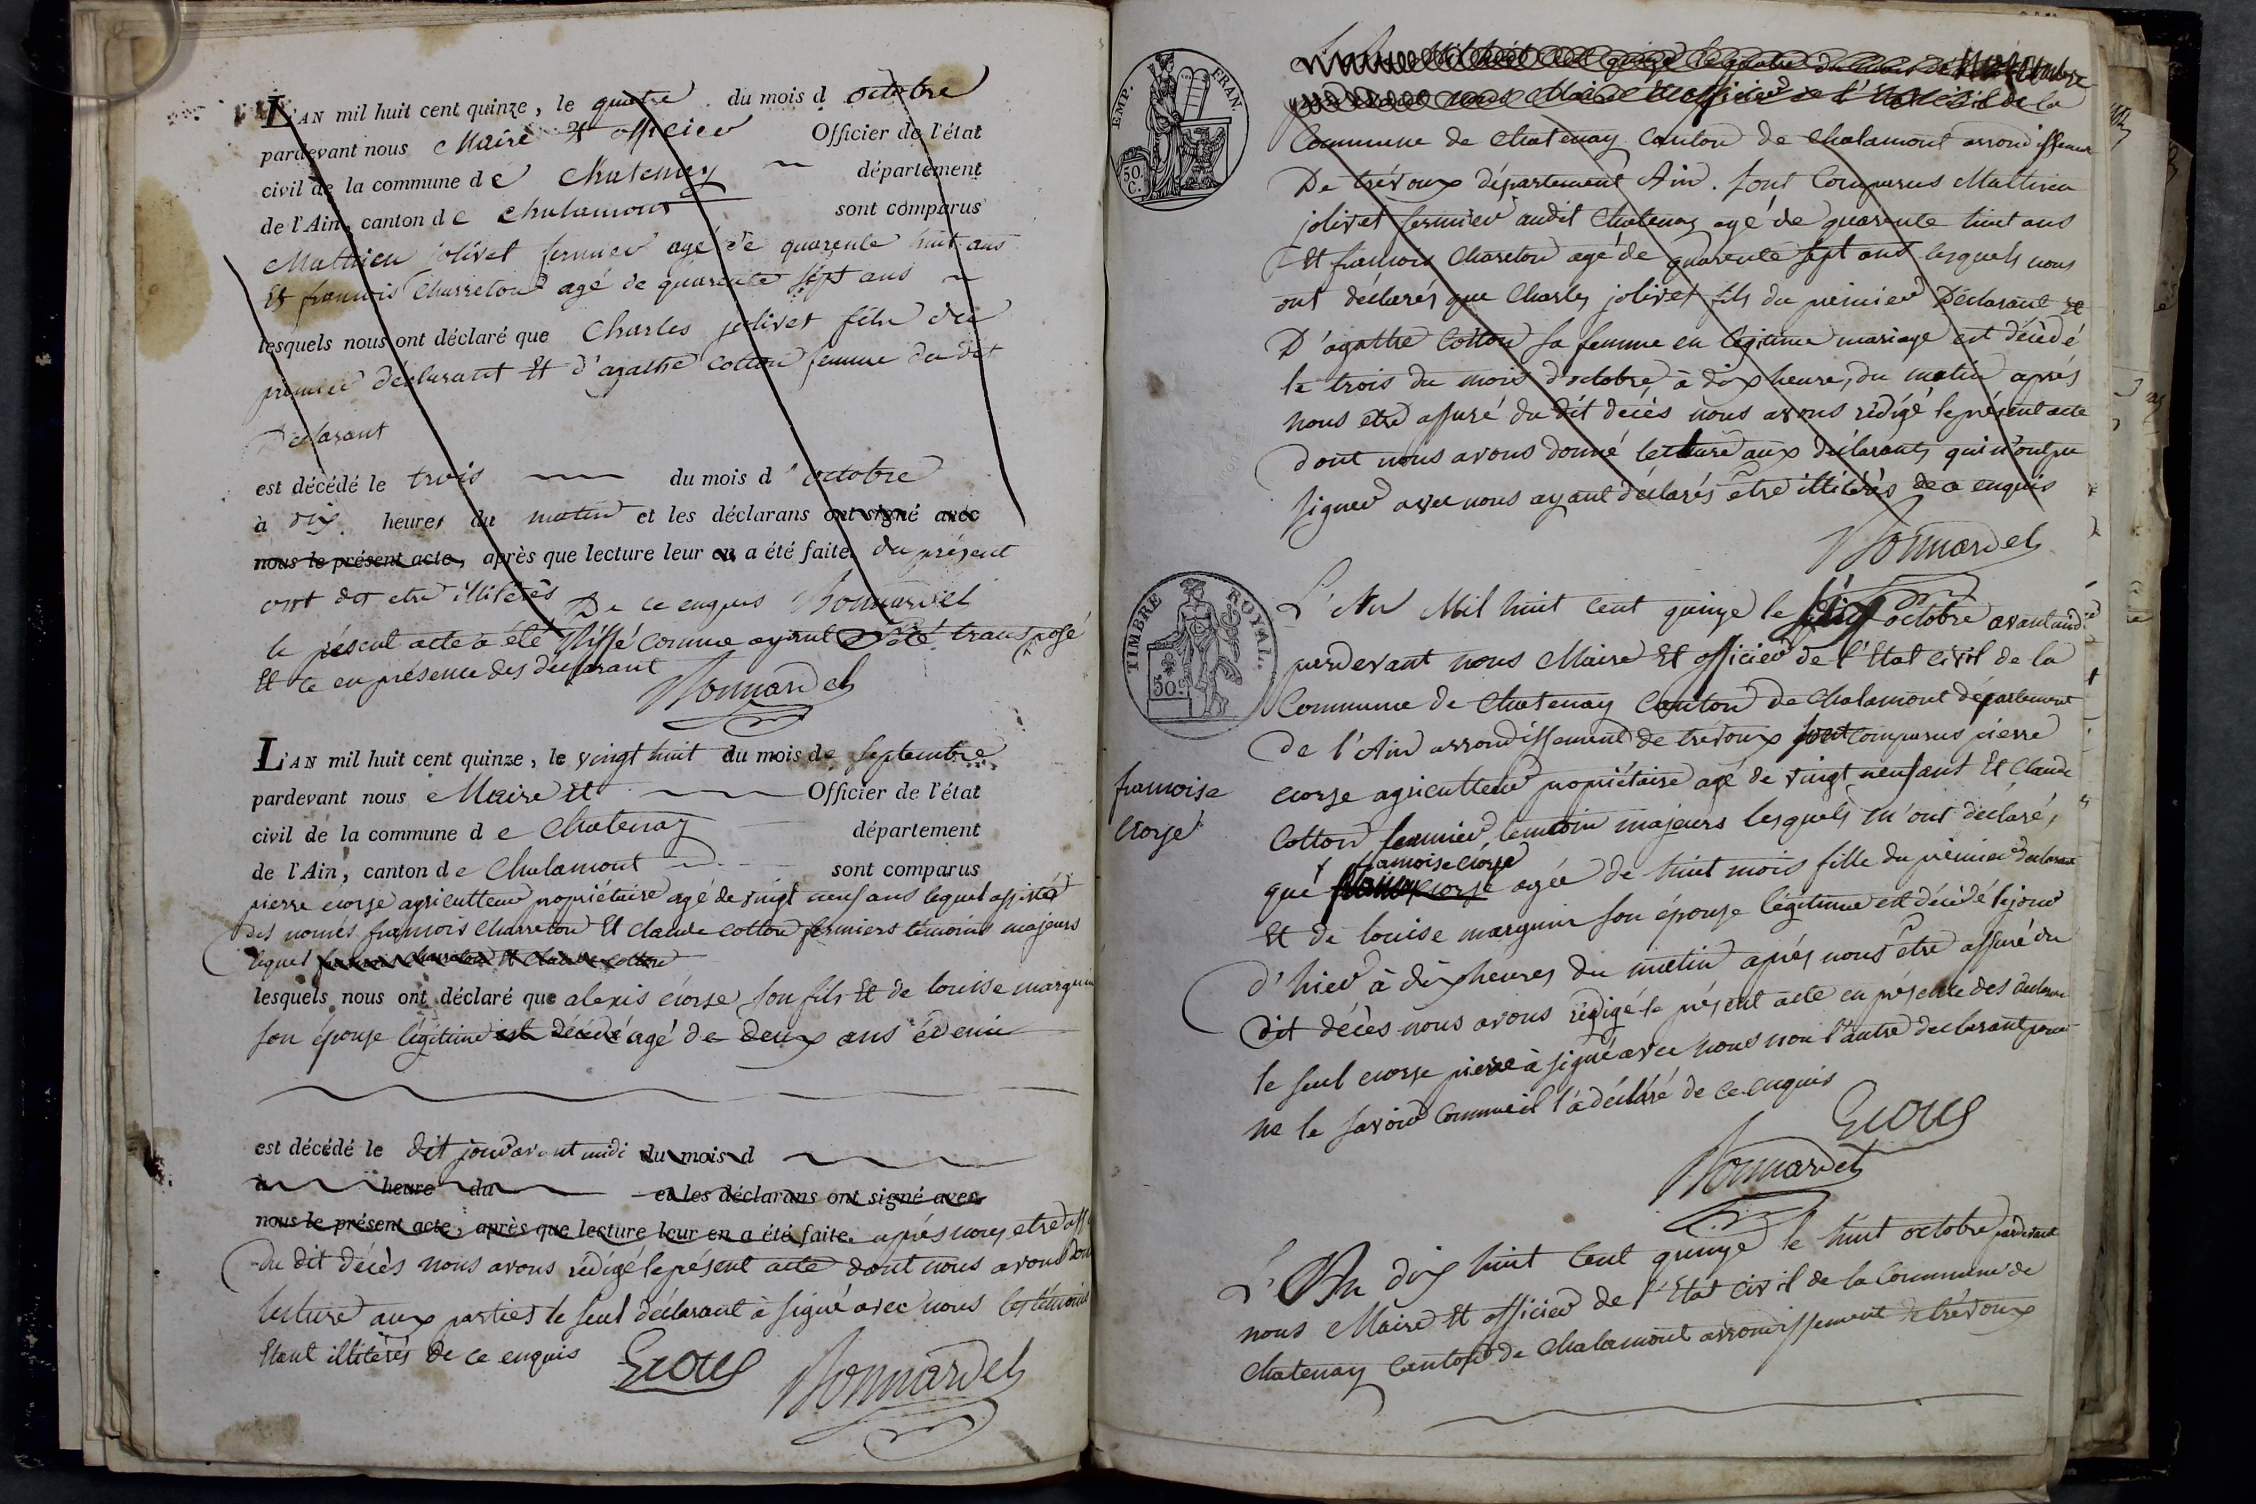 L'AN mil huit cent quinze, le quatre du mois d octobre
pardevant nous Maire et officier Officier de l'état
civil de la commune d e Chatenay département
de l'Ain, canton d e Chalamont sont comparus
Mathieu jolivet fermier agé de quarente huit ans
Et francois Charreton agé de quarente sept ans
lesquels nous ont déclaré que Charles jolivet fils du
premier déclarant Et d'agathe Cotton femme du dit
Déclarant
est décédé le trois du mois d'octobre
à dix heures du matin et les déclarans ont signé avec
nous le présent acte, après que lecture leur en a été faite. du présent
ont dit etre illiterés De ce enquis Bonnardel
le présent acte a été biffé comme ayant été transposé
Et ce en présence des declarant
Bonnardel
L'AN mil huit cent quinze, le vingt huit du mois de septembre
pardevant nous Maire Et Officier de l'état
civil de la commune d e Chatenay département
de l'Ain, canton d e Chalamont sont comparus
pierre ciorge agriculteur propriétaire agé de vingt neuf ans lequel assisté
des només francois Charreton Et claude cotton fermiers temoins majeurs
léquel francois Charreton Et Claude Cotton
lesquels nous ont déclaré que alexis ciorge son fils Et de louise marguin
son épouse légitime est décédé agé de deux ans et demi
est décédé le dit jour avant midi du mois d
à heure du et les déclarans ont signé avec
nous le présent acte, après que lecture leur en a été faite. aprés nous etre ass
du dit décès nous avons rédigé le présent acte dont nous avons don
lecture aux parties le seul déclarant à signé avec nous les témoins
Etant illiterés de ce enquis
Bonnardel
L'An Mil huit cent quinze le quatre du mois de
nous Maire Et officier de l'Etat civil de la
Commune de Chatenay Canton de Chalamont arrondissement
De trévoux département Ain. sont Comparus Mathieu
jolivet fermier audit Chatenay agé de quarente huit ans
Et francois Chareton agé de quarente sept ans lesquels nous
ont déclarés que Charles jolivet fils du prémier Déclarant et
D'agathe Cotton sa femme en légitime mariage est décédé
le trois du mois d'octobre à dix heures du matin aprés
nous etre assuré du dit decès nous avons rédigé le présent acte
dont nous avons donné lecture aux déclarants qui n'ont pu
signer avec nous ayant déclarés être illiterés de ce enquis
Bonnardel
EMP. FRAN.
50 C.
TIMBRE ROYAL.
50 c
L'An Mil huit cent quinze le dix octobre avant midi
pardevant nous Maire Et officier de l'Etat civil de la
Commune de Chatenay Canton de Chalamont département
de l'Ain arrondissement de trévoux sont comparus pierre
francoise
ciorge
ciorge agriculteur propriétaire agé de vingt neuf ans Et Claude
Cotton fermier temoin majeurs lesquels m'ont déclaré,
francoise ciorge
qué agée de huit mois fille du prémier declarant
Et de louise marguin son épouse légitime est décédé le jour
d'hier à dix heures du matin aprés nous être assuré du
dit décès nous avons rédigé le présent acte en présence des declarans
le seul ciorge pierre à signé avec nous non l'autre declarant pour
ne le savoir comme il l'a déclaré de ce enquis
Bonnardel
L'An dix huit cent quinze le huit octobre pardevant
nous Maire Et officier de l'Etat civil de la Commune de
Chatenay Canton de Chalamont arrondissement de trévoux